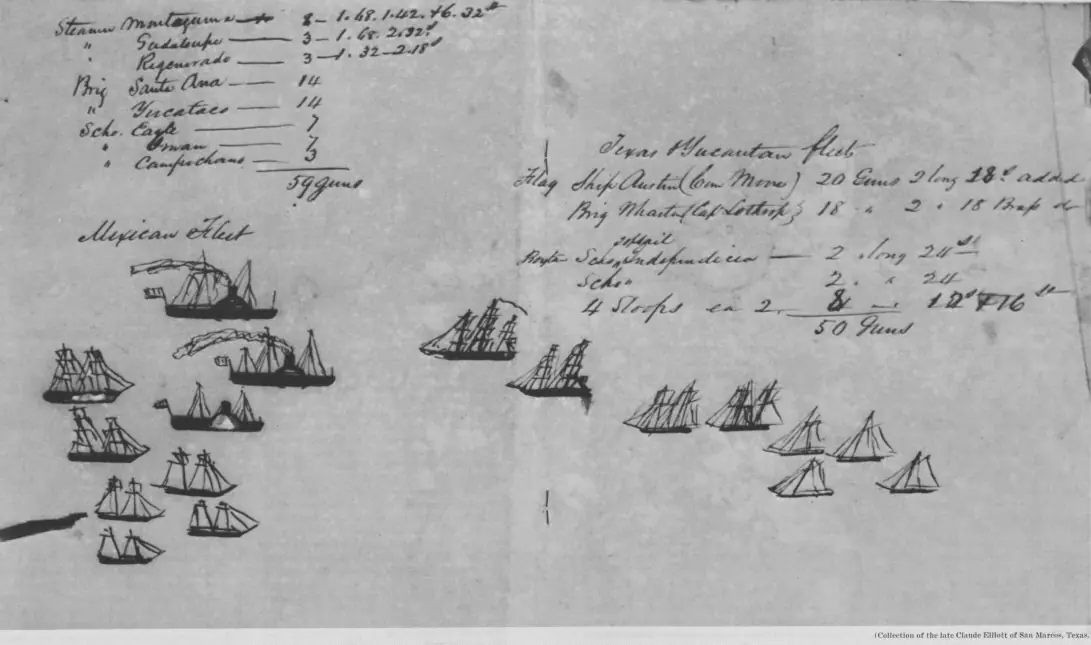 Steamer Montezuma — 8 – 1. 68. 1. 42. + 6. 32ˢ
" Guadaloupe — 3 – 1. 68. 2. 32ˢ
" Regenerado — 3 – 1. 32 – 2. 18ˢ
Brig Santa Ana — 14
" Yucataco — 14
Scho. Eagle — 7
" Iman — 7
" Campechano — 3
59 Guns
Mexican Fleet
Texas & Yucautan fleet
Flag Ship Austin (Com Moore) 20 Guns 2 long 18ˢ added
Brig Wharton (Cap Lothrop) 18 " 2 " 18 Brass do
topsail
Scho Independicia — 2 long 24ˢ
Scho " 2 " 24
4 Sloops ea 2. 8 — 12ˢ + 16ˢ
50 Guns
(Collection of the late Claude Elliott of San Marcos, Texas.